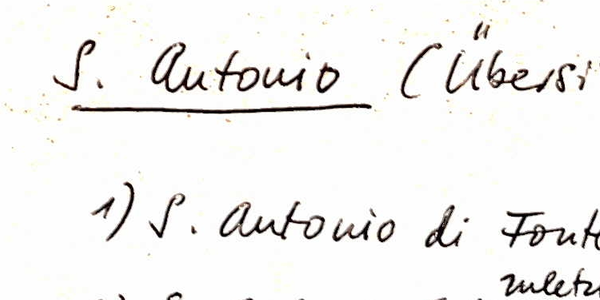 S. Antonio (Übersi
1) S. Antonio di Font
zuletz